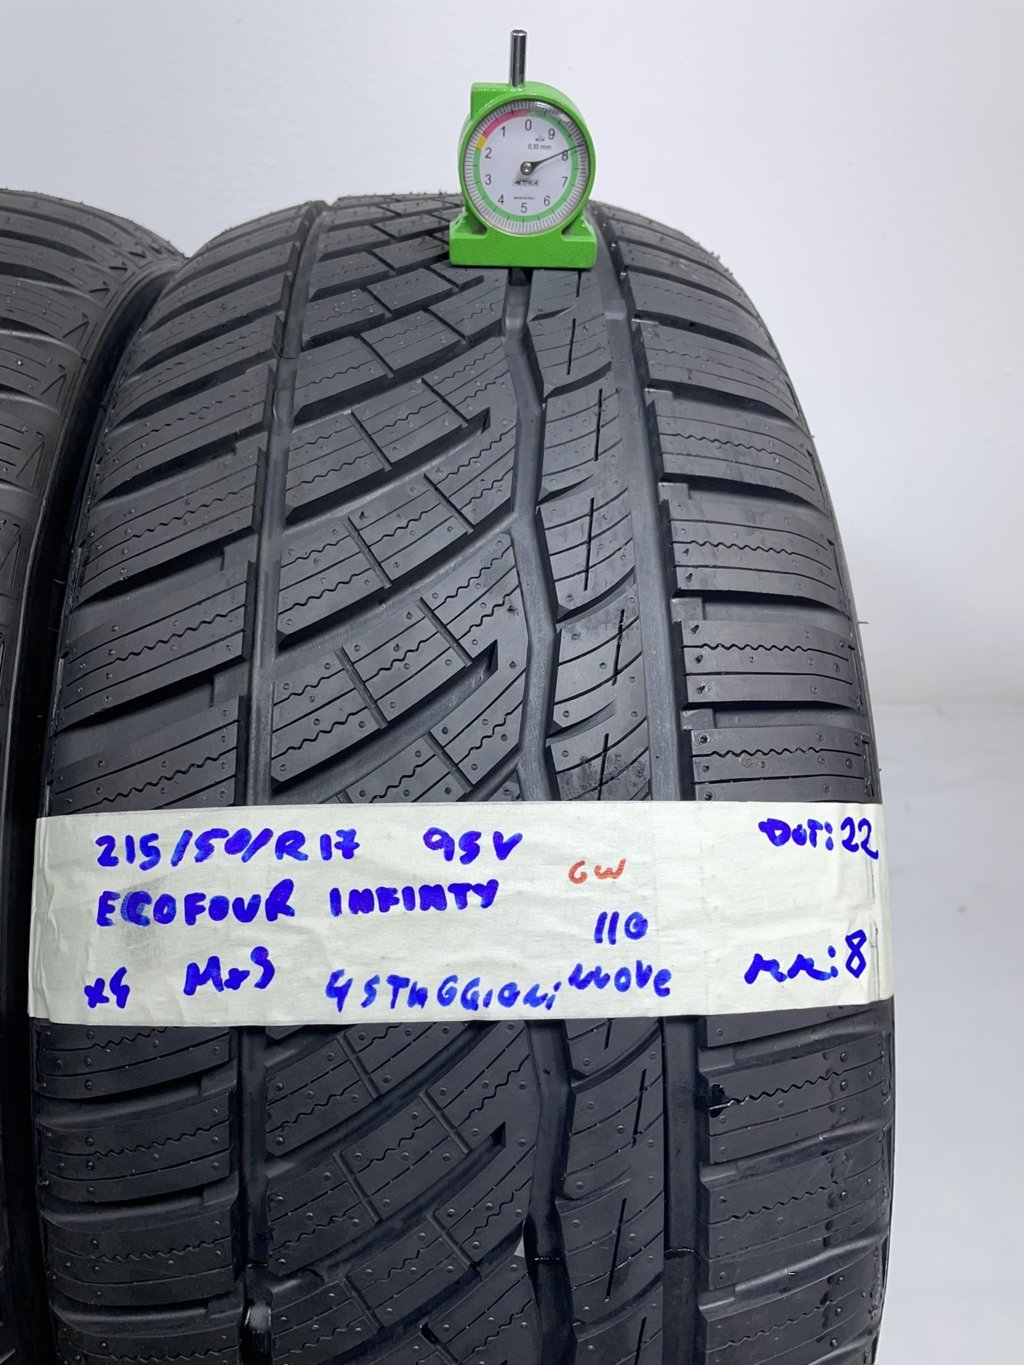 0
1
9
0,10 mm
2
8
3
7
METRICA
4
6
5
MADE IN ITALY
215/50/R17 95V DOT:22
ECOFOUR INFINTY GW
110
x4 M+S 4 STAGGIONI NUOVE mm:8